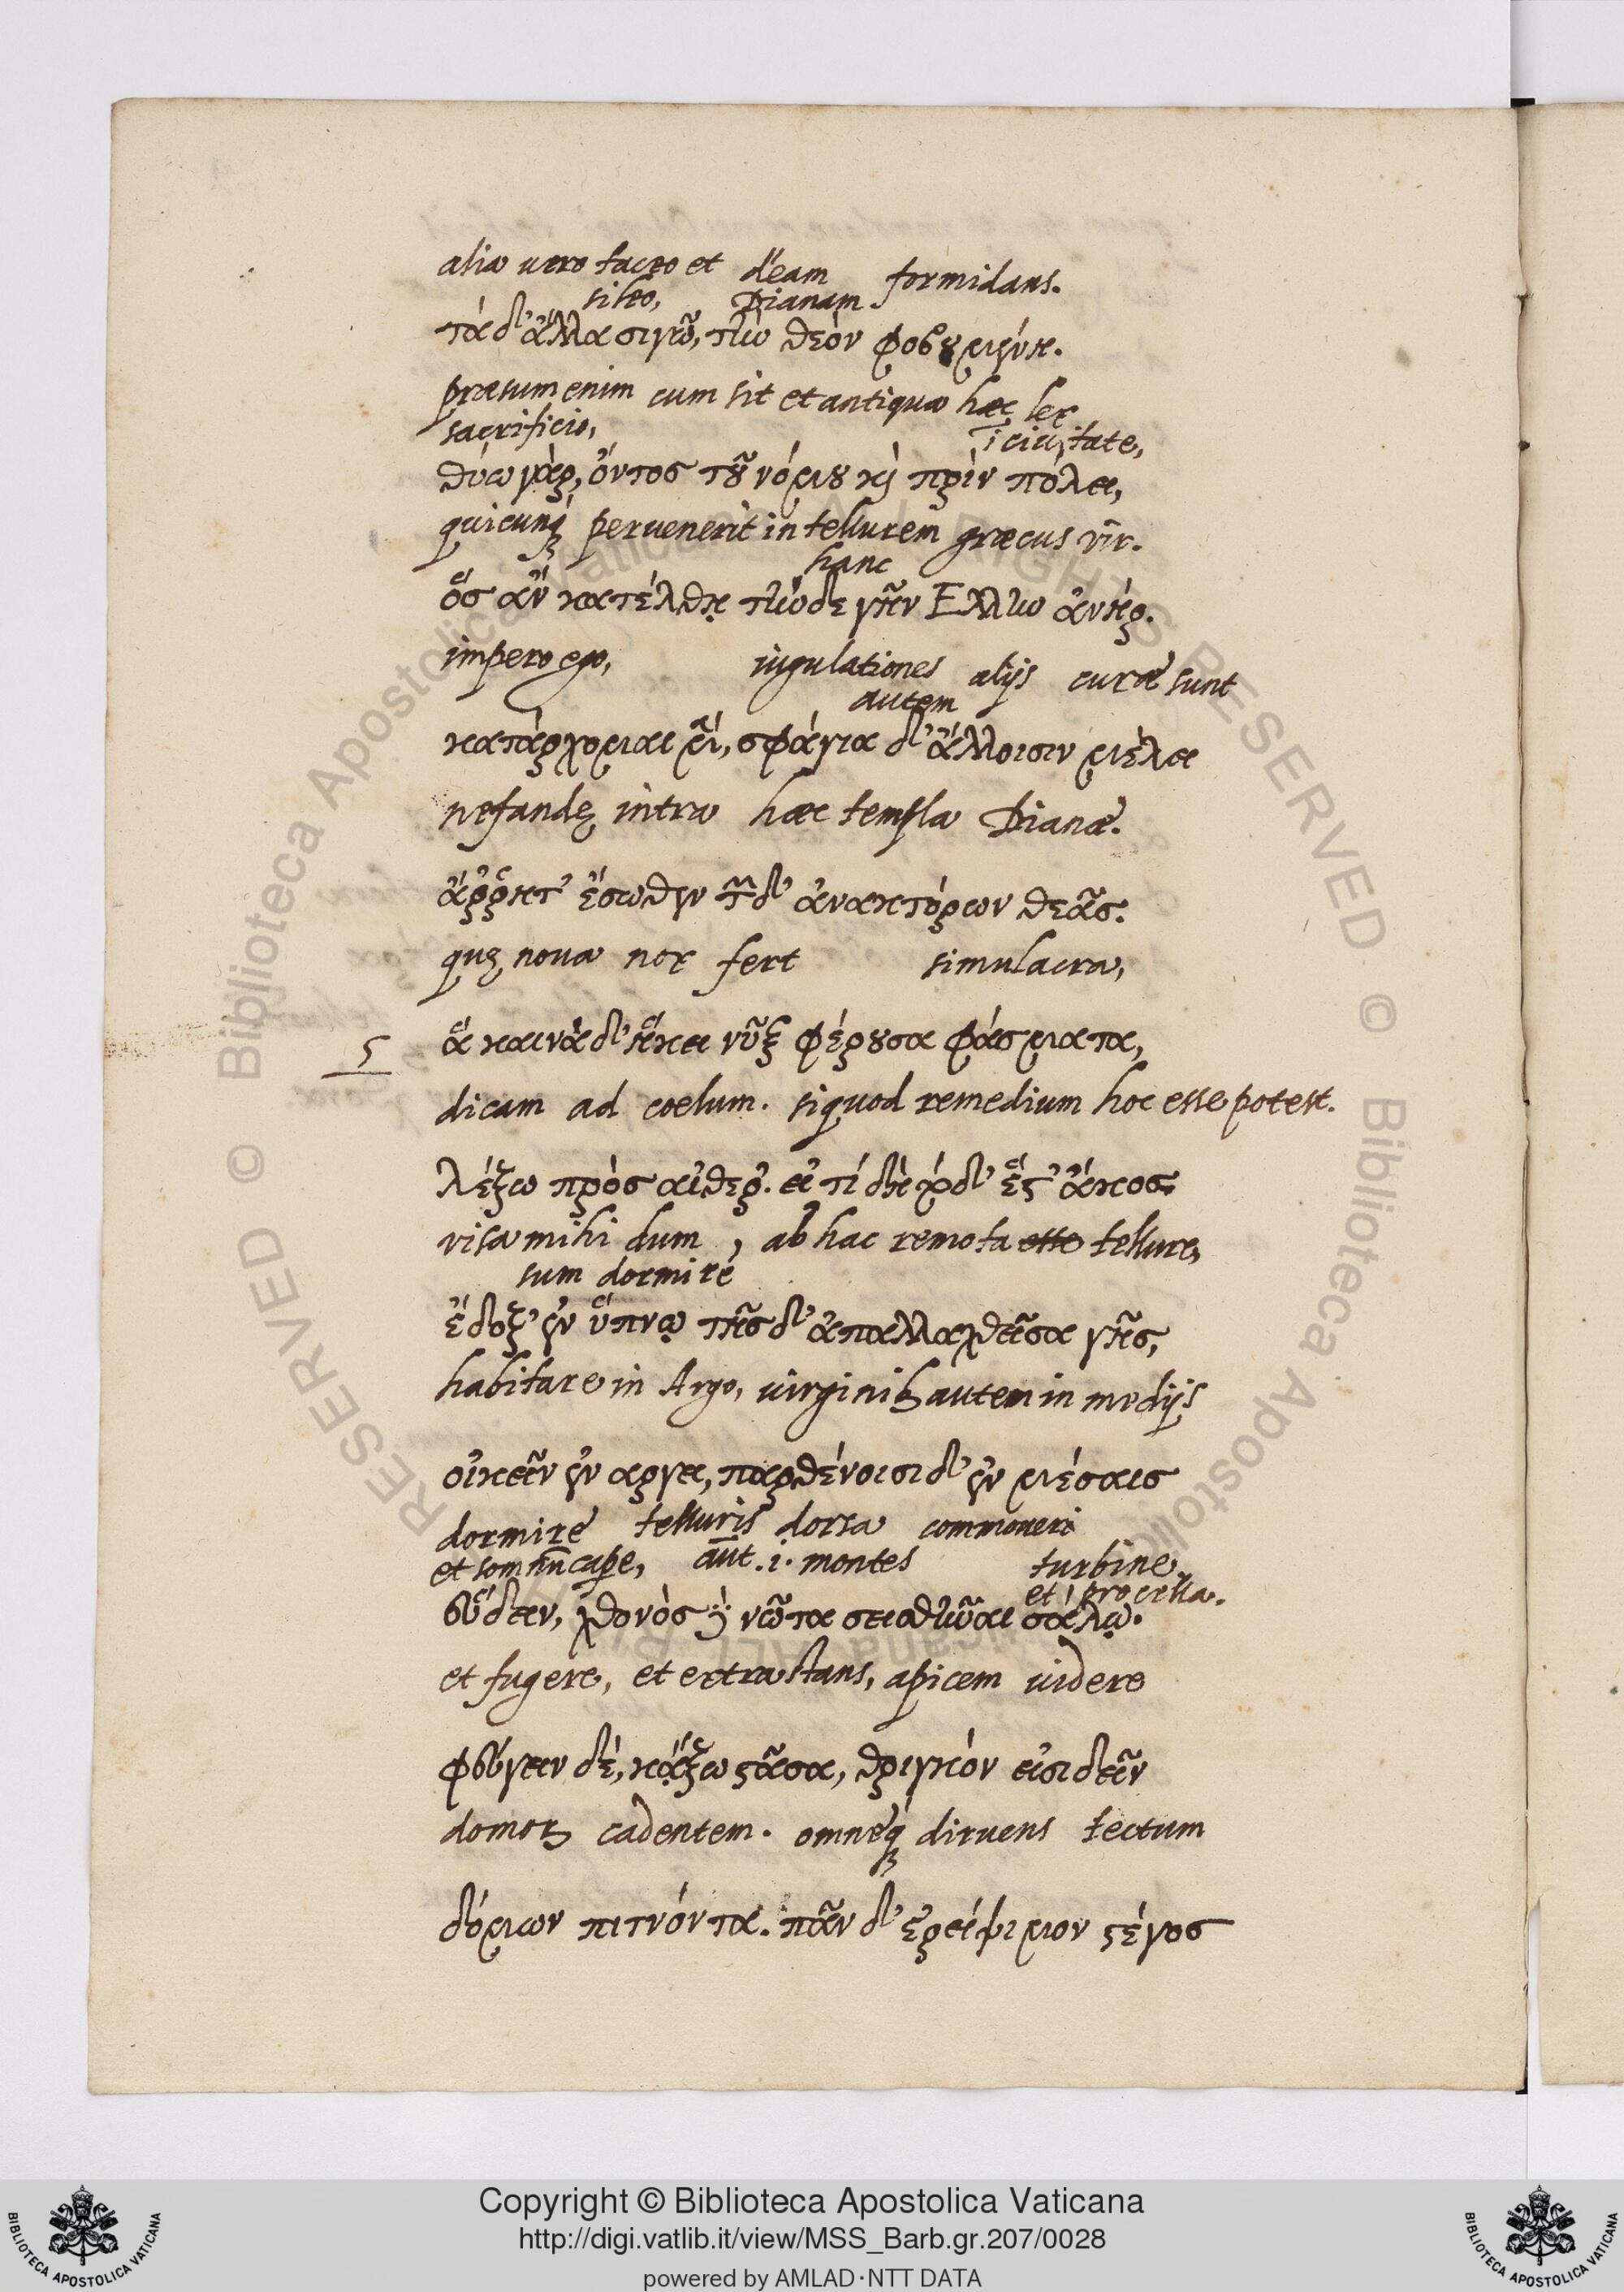 alia uero taceo et deam formidans.
sileo, Dianam
τὰ δ' ἄλλα σιγῶ, τὴν θεὸν φοβουμένη.
præsum enim cum sit et antiqua hæc lex
sacrificio, i ciuitate,
θύω γὰρ, ὄντος τοῦ νόμου καὶ πρὶν πόλει,
quicunq; peruenerit in tellurem græcus vir.
hanc
ὃς ἂν κατέλθῃ τήνδε γῆν Ελλην ἀνήρ.
impero ego, iugulationes alijs curæ sunt
autem
κατάρχομαι μὲν, σφάγια δ' ἄλλοισιν μέλει
nefandę intra hæc templa Dianæ.
ἄῤῥητ' ἔσωθεν τῶνδ' ἀνακτόρων θεᾶς.
quę noua nox fert simulacra,
5 ἃ καινὰ δ' ἥκει νὺξ φέρουσα φάσματα,
dicam ad coelum. siquod remedium hoc esse potest.
λέξω πρὸς αἰθέρ'. εἴ τι δὴ τόδ' ἔστ' ἄκος
visa mihi dum, ab hac remota esse tellure,
sum dormire
ἔδοξ' ἐν ὕπνῳ τῆσδ' ἀπαλλαχθεῖσα γῆς,
habitare in Argo, uirginib; autem in medijs
οἰκεῖν ἐν αργει, παρθένοισι δ' ἐν μέσαις
dormire telluris dorsa commoueri
et somnū cape, aūt .i. montes turbine
et procella.
εὕδειν, χθονὸς δὲ νῶτα σεισθῆναι σάλῳ.
et fugere, et extra stans, apicem uidere
φεύγειν δὲ, κἄξω στᾶσα, θριγκὸν εἰσιδεῖν
domorum cadentem. omneq; diruens tectum
δόμων πιτνόντα. πᾶν δ' ἐρείψιμον στέγος
Copyright © Biblioteca Apostolica Vaticana
http://digi.vatlib.it/view/MSS_Barb.gr.207/0028
powered by AMLAD·NTT DATA